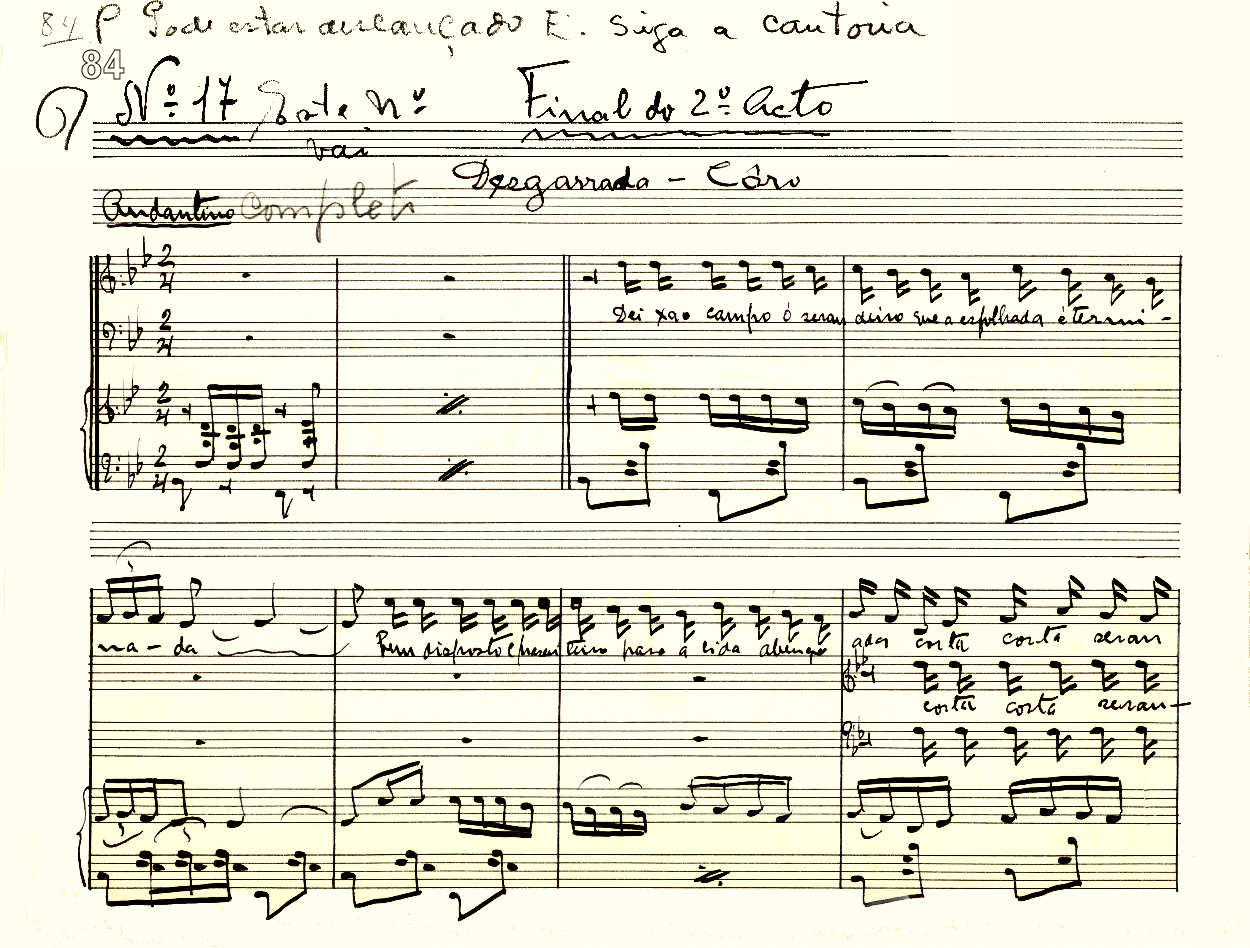 84 P Pode estar descançado E. Siga a cantoria
84
Nº 17 Este Nº Final do 2º Acto
vai
Desgarrada - Côro
Andantino Completo
2/4
2/4
Dei xa o campo ó seran deiro que a esfolhada é termi-
2/4
2/4
na-da Bem disposto e prasen teiro para a vida abenço
ada corta corta seran
corta corta seran-